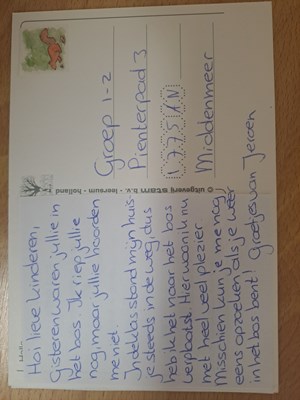 Hoi lieve kinderen,
Gisteren waren jullie in
het bos. Ik riep jullie
nog maar jullie hoorden
me niet.
In de klas stond mijn huis-
je steeds in de weg, dus
heb ik het naar het bos
verplaatst. Hier woon ik nu
met heel veel plezier.
Misschien kun je me nog
eens opzoeken als je weer
in het bos bent! Groetjes van Jeroen
© uitgeverij stam b.v. - leersum - holland
Groep 1-2
Pienterpad 3
1775 KN
Middenmeer